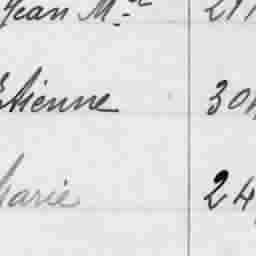 Jean M.el 211
Etienne 30
Marie 24